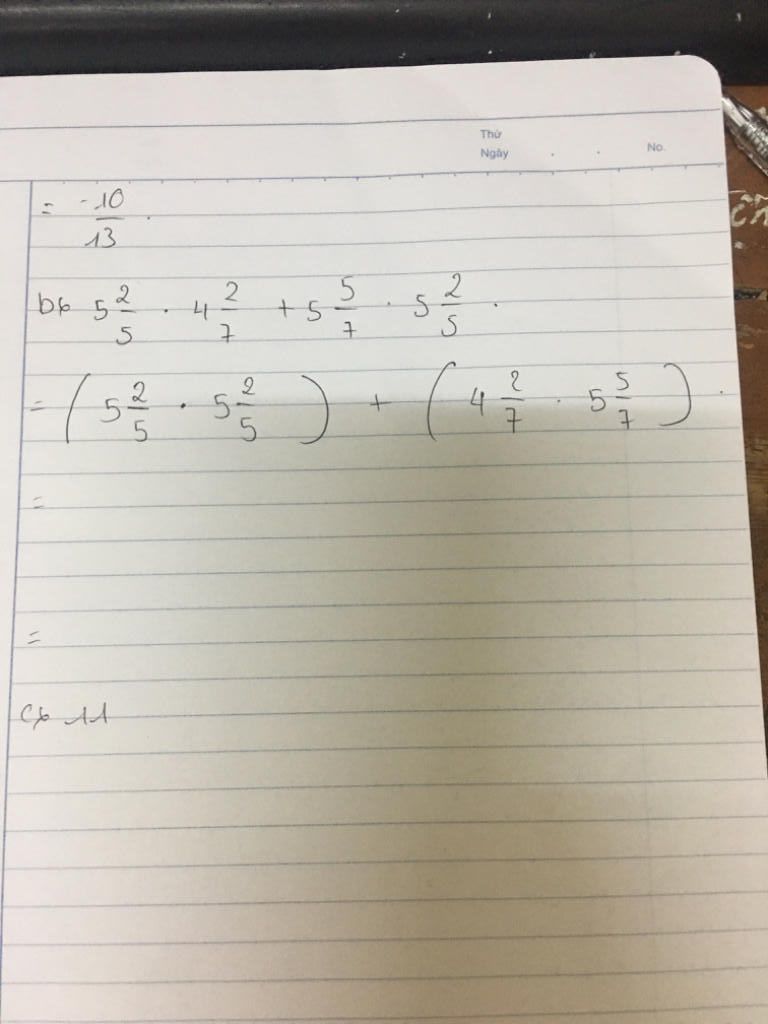 Thứ
Ngày . . No.
= -10/13 .
b, 5 2/5 . 4 2/7 + 5 5/7 . 5 2/5 .
= ( 5 2/5 . 5 2/5 ) + ( 4 2/7 . 5 5/7 ) .
=
=
c, 11